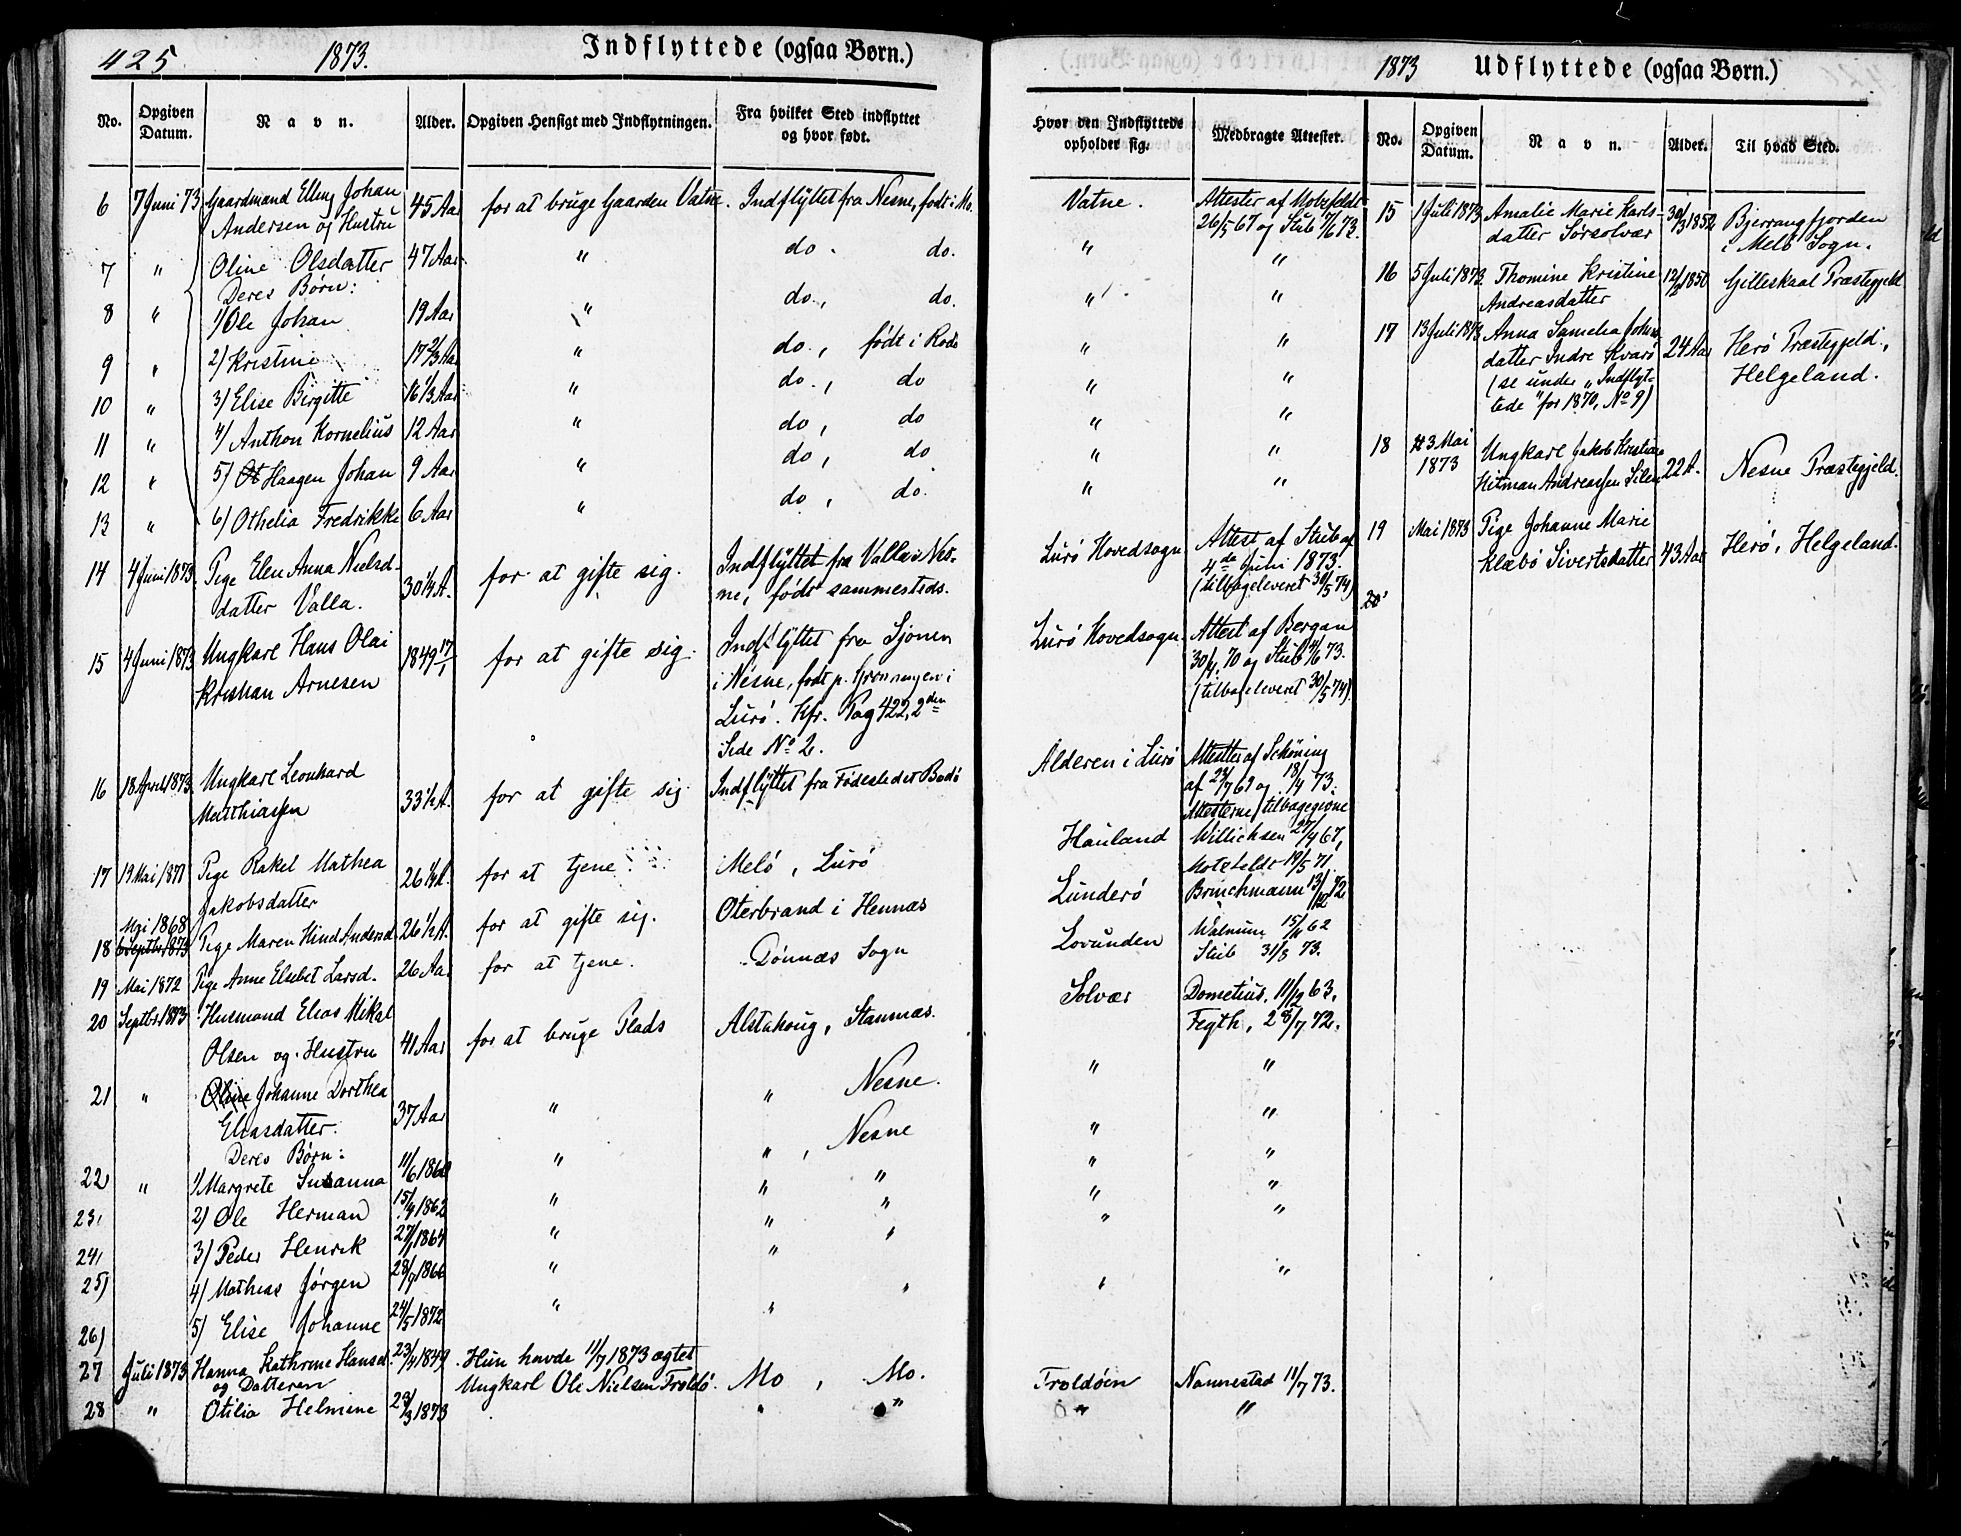 425 1873. Indflyttede (ogsaa Børn.)
No. Opgiven Datum. Navn. Alder. Opgiven Hensigt med Indflytningen. Fra hvilket Sted indflyttet og hvor født.
6 7 Juni 73 Gaardmand Elling Johan 45 Aar for at bruge Gaarden Vatne. Indflyttet fra Nesne, født i Mo.
Andersen og Hustru
7 " Oline Olsdatter 47 Aar " do. do.
Deres Børn:
8 " 1) Ole Johan 19 Aar " do., do.
9 " 2) Kristine 17 2/3 Aar " do., født i Rodø
10 " 3) Elise Birgitte 16 1/3 Aar " do., do
11 " 4) Anthon Kornelius 12 Aar " do, do
12 " 5) Haagen Johan 9 Aar " do, do
13 " 6) Othelia Fredrikke 6 Aar " do, do.
14 4 Juni 1873 Pige Elen Anna Nielsd- 30 1/4 A. for at gifte sig. Indflyttet fra Valla i Nes-
datter Valla. ne, født sammesteds.
15 4 Juni 1873 Ungkarl Hans Olai 1849 17/1 for at gifte sig. Indflyttet fra Sjonen
Kristian Arnesen i Nesne, født p. Grønningen i
Lurö. Kfr. Pag 422, 2den
Side No 2.
16 18 April 1873 Ungkarl Leonhard 33 1/2 A. for at gifte sig. Indflyttet fra Fødestedet Bodö
Matthiassen
17 19 Mai 1871 Pige Rakel Mathea 26 1/4 A. for at tjene. Melö, Lurö
Jakobsdatter
Mai 1868
18 Septbr 1873 Pige Maren Hind Andersd. 26 1/2 A. for at gifte sig. Oterbrand i Hennæs
19 Mai 1872 Pige Anne Elsebet Larsd. 26 Aar for at tjene. Dønnæs Sogn
20 Septbr 1873 Husmand Elias Mikal
Olsen og Hustru 41 Aar for at bruge Plads Alstahoug, Stamnæs.
21 " Oline Johanne Dorthea 37 Aar " " Nesne.
Eliasdatter.
Deres Børn: " , Nesne
22 " 1) Margrete Susanna 11/6 1860 " " "
23, 2) Ole Herman 15/4 1862 " " "
24, 3) Peder Henrik 27/1 1864 " " "
25) 4) Mathias Jørgen 28/9 1866 " " "
26) 5) Elise Johanne 24/5 1872 " "
27 Juli 1873 Hanna Kathrine Hansd. 23/4 1849 Hun havde 11/7 1873 ægtet
og Datteren Ungkarl Ole Nielsen Troldö. Mo, Mo.
28 " Otilia Helmine 23/3 1873 " "
1873 Udflyttede (ogsaa Børn.)
Hvor den Indflyttede opholder sig. Medbragte Attester. No. Opgiven Datum. Navn. Alder. Til hvad Sted.
Vatne. Attester af Motzfeldt
26/5 67 og Stub 7/6 73.
" "
" "
" "
" "
" "
" "
" "
Lurö Hovedsogn Attest af Stub af
4de Juni 1873.
(tilbageleveret 30/5 74)
Lurö Hovedsogn. Attest af Bergan
30/4 70 og Stub 4/6 73.
(tilbageleveret 30/5 74).
Alderen i Lurö Attester af Schöning
af 23/7 67 og 18/4 73.
Attesterne tilbagegivne
Hauland Willichsen 27/9 67,
Motzfeldt 19/5 71.
Lunderö Brinchmann 13/12 72
Lovunden Walnum 15/11 62
Stub 31/3 73.
Solvær Dometius, 11/12 63,
Fegth, 28/7 72.
" "
" "
" "
" "
" "
" "
Troldöen Nannestad 11/7 73.
" "
15 1 Juli 1873 Amalie Marie Karls- 30/3 1852 Bjerrangfjorden
datter Sørsolvær i Melö Sogn.
16 5 Juli 1873 Thomine Kristine 12/2 1850 Gilleskaal Præstegjeld
Andreasdatter
17 13 Juli 1873 Anna Samelia Johns 24 Aar Herö Præstegjeld,
datter Indre Kvarö Helgeland.
(se under "Indflyt-
tede" for 1870, No 9)
18 23 Mai 1873 Ungkarl Jakob Kristian 22 A. Nesne Præstegjeld.
Hitman Andreassen Silen
19 Mai 1873 Pige Johanne Marie 43 Aar Herö, Helgeland.
Klæbö Sivertsdatter
20